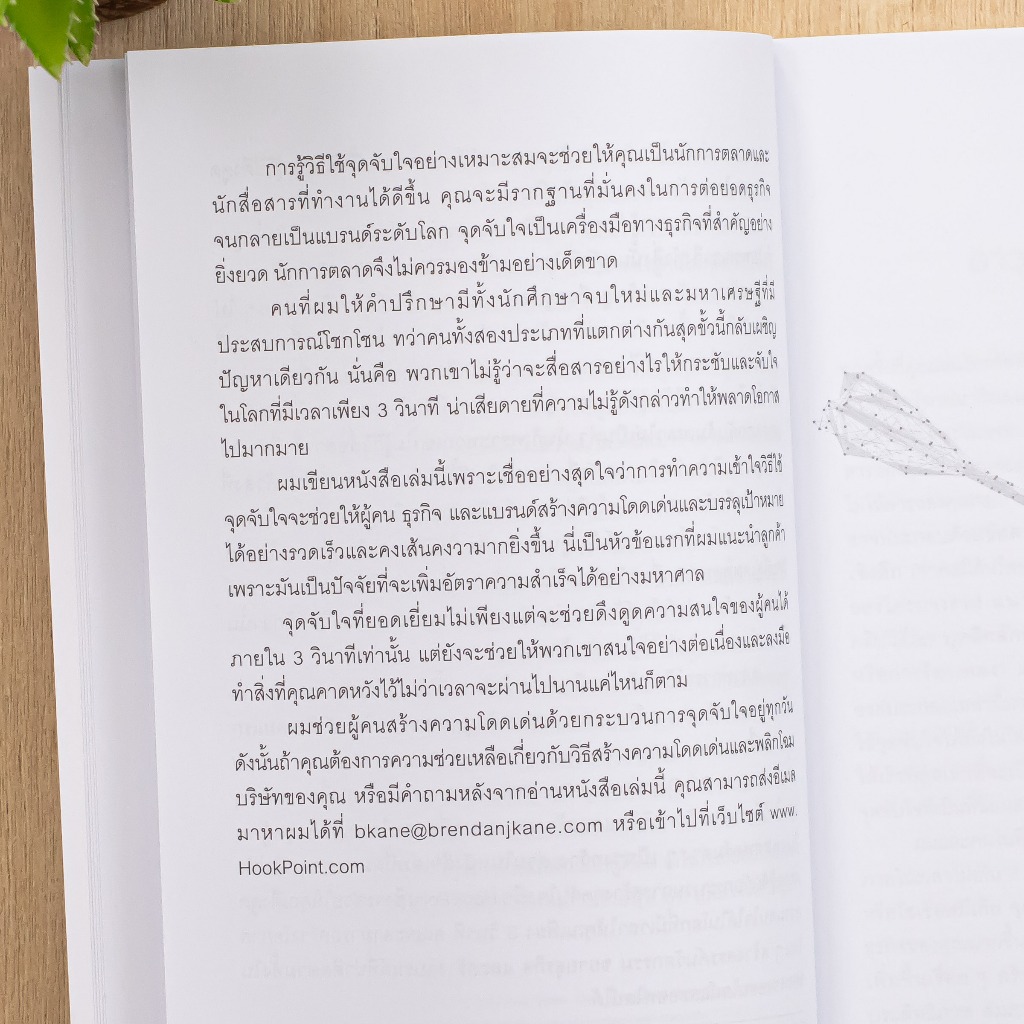 การรู้วิธีใช้จุดจับใจอย่างเหมาะสมจะช่วยให้คุณเป็นนักการตลาดและ
นักสื่อสารที่ทำงานได้ดีขึ้น คุณจะมีรากฐานที่มั่นคงในการต่อยอดธุรกิจ
จนกลายเป็นแบรนด์ระดับโลก จุดจับใจเป็นเครื่องมือทางธุรกิจที่สำคัญอย่าง
ยิ่งยวด นักการตลาดจึงไม่ควรมองข้ามอย่างเด็ดขาด
คนที่ผมให้คำปรึกษามีทั้งนักศึกษาจบใหม่และมหาเศรษฐีที่มี
ประสบการณ์โชกโชน ทว่าคนทั้งสองประเภทที่แตกต่างกันสุดขั้วนี้กลับเผชิญ
ปัญหาเดียวกัน นั่นคือ พวกเขาไม่รู้ว่าจะสื่อสารอย่างไรให้กระชับและจับใจ
ในโลกที่มีเวลาเพียง 3 วินาที น่าเสียดายที่ความไม่รู้ดังกล่าวทำให้พลาดโอกาส
ไปมากมาย
ผมเขียนหนังสือเล่มนี้เพราะเชื่ออย่างสุดใจว่าการทำความเข้าใจวิธีใช้
จุดจับใจจะช่วยให้ผู้คน ธุรกิจ และแบรนด์สร้างความโดดเด่นและบรรลุเป้าหมาย
ได้อย่างรวดเร็วและคงเส้นคงวามากยิ่งขึ้น นี่เป็นหัวข้อแรกที่ผมแนะนำลูกค้า
เพราะมันเป็นปัจจัยที่จะเพิ่มอัตราความสำเร็จได้อย่างมหาศาล
จุดจับใจที่ยอดเยี่ยมไม่เพียงแต่จะช่วยดึงดูดความสนใจของผู้คนได้
ภายใน 3 วินาทีเท่านั้น แต่ยังจะช่วยให้พวกเขาสนใจอย่างต่อเนื่องและลงมือ
ทำสิ่งที่คุณคาดหวังไว้ไม่ว่าเวลาจะผ่านไปนานแค่ไหนก็ตาม
ผมช่วยผู้คนสร้างความโดดเด่นด้วยกระบวนการจุดจับใจอยู่ทุกวัน
ดังนั้นถ้าคุณต้องการความช่วยเหลือเกี่ยวกับวิธีสร้างความโดดเด่นและพลิกโฉม
บริษัทของคุณ หรือมีคำถามหลังจากอ่านหนังสือเล่มนี้ คุณสามารถส่งอีเมล
มาหาผมได้ที่ bkane@brendanjkane.com หรือเข้าไปที่เว็บไซต์ www.
HookPoint.com